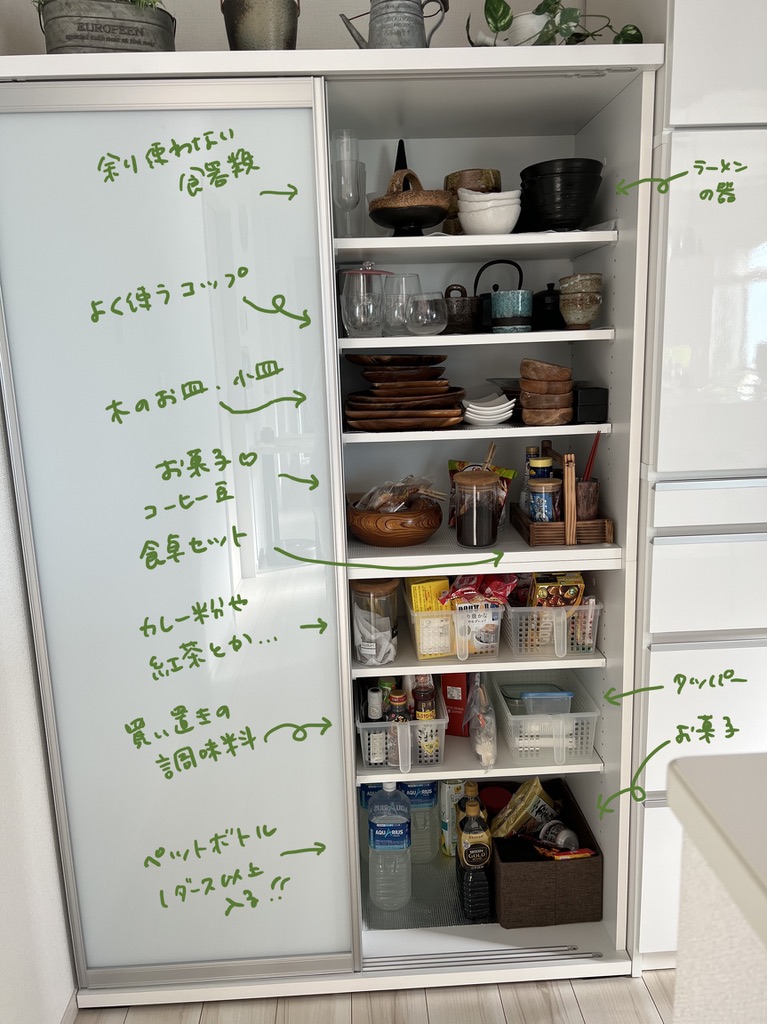 EUROPEEN
余り使わない
食器類
ラーメン
の器
よく使うコップ
木のお皿、小皿
お菓子♡
コーヒー豆
食卓セット
カレー粉や
紅茶とか…
タッパー
買い置きの
調味料
お菓子
ペットボトル
1ダース以上
入る!!
AQUARIUS
AQUARIUS
GOLD